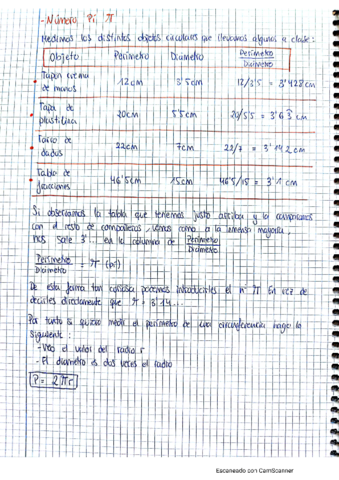 - Número Pi π
Medimos los distintos objetos circulares que llevamos algunos a clase:
Objeto Perímetro Diámetro Perímetro/Diámetro
Tapón crema de manos 12cm 3'5cm 12/3'5 = 3'428cm
Tapa de plastilina 20cm 5'5cm 20/5'5 = 3'63cm
Tarro de dados 22cm 7cm 22/7 = 3'142cm
Tablo de fracciones 46'5cm 15cm 46'5/15 = 3'1cm
Si observamos la tabla que tenemos justo arriba y la comparamos
con el resto de compañeros, vemos como a la inmensa mayoría
nos sale 3'... en la columna de Perímetro/Diámetro
Perímetro/Diámetro = π (pi)
De esta forma tan curiosa podemos introducirles el nº π en vez de
decirles directamente que π = 3'14...
Por tanto si quiero medir el perímetro de una circunferencia hago lo
siguiente:
- Veo el valor del radio r
- El diámetro es dos veces el radio
P = 2πr
Escaneado con CamScanner